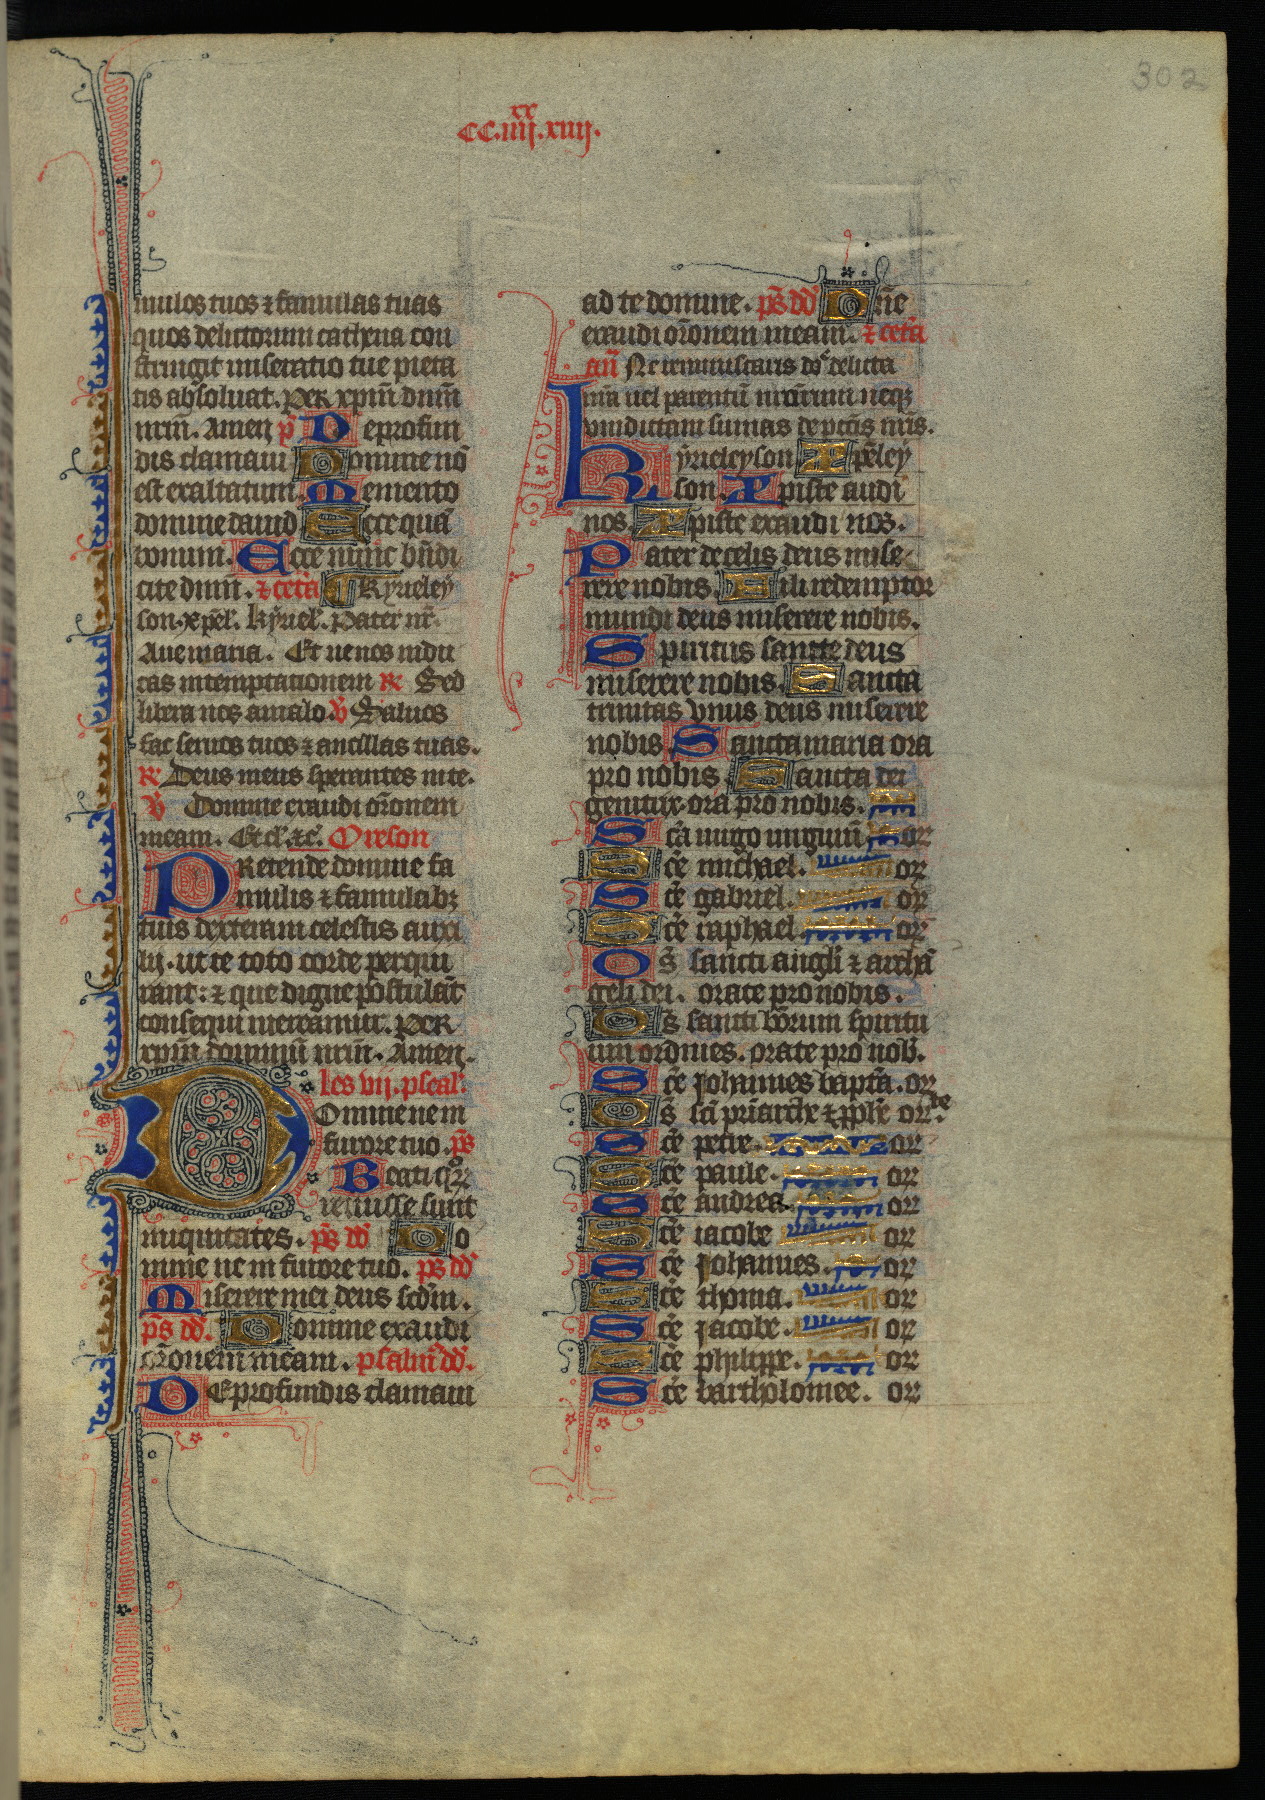 302
xx
CC.iiij.xiiij.
mulos tuos ⁊ famulas tuas
quos delictorum cathena con
stringit miseratio tue pieta
tis absoluat. PER xpm̄ dnm̄
nrm̄. Amen p̄ Deprofun
dis clamaui Domine nō
est exaltatum. Memento
domine dauid Ecce quā
bonum. Ecce nunc bn̄di
cite dnm̄. ⁊ cetā Kyrieley
son. xp̄el. kyriel. Pater nr̄.
Aue maria. Et ne nos indu
cas intemptationem ℟ Sed
libera nos amalo. ℣ Saluos
fac seruos tuos ⁊ ancillas tuas.
℟ Deus meus sperantes inte.
℣ Domine exaudi or̄onem
meam. Et cl̄. ⁊c̄. Oreson
PRetende domine fa
mulis ⁊ famulabꝫ
tuis dexteram celestis auxi
lij. ut te toto corde perqui
rant: ⁊ que digne postulāt
consequi mereamur. PER
xpm̄ dominū nrm̄. Amen.
les vij. pseal.
Domine ne in
furore tuo. ps̄
Beati qꝝ
remisse sunt
iniquitates. ps̄ dd̄ Do
mine ne in furore tuo. ps̄ dd̄
Miserere mei deus scd̄m.
ps̄ dd̄. Domine exaudi
or̄onem meam. psalm̄ dd̄.
DEprofundis clamaui
ad te domine. ps̄ dd̄ Dn̄e
exaudi or̄onem meam. ⁊ cetā
an̄ Ne reminiscaris dn̄e delicta
nr̄a uel parentū nrōrum neqꝫ
vindictam sumas de pctīs nr̄is.
kyrieleyson Xp̄eley
son. Xpiste audi
nos. Xpiste exaudi nos.
Pater de celis deus mise
rere nobis. Fili redemptor
mundi deus miserere nobis.
Spiritus sancte deus
miserere nobis. Sancta
trinitas vnus deus miserere
nobis. Sancta maria ora
pro nobis. Sancta dei
genitrix. ora pro nobis.
Sc̄a uirgo uirginū orꝝ
Sc̄e michael. orꝝ
Sc̄e gabriel. orꝝ
Sc̄e raphael. orꝝ
Os̄ sancti angl̄i ⁊ archā
geli dei. orate pro nobis.
Os̄ sancti bōrum spiritu
um ordines. orate pro nob̄.
Sc̄e johannes bapta. orꝝ
Os̄ sc̄i pr̄iarche ⁊ ꝓph̄e orꝝ.
Sc̄e petre. orꝝ
Sc̄e paule. orꝝ
Sc̄e andrea. orꝝ
Sc̄e iacobe orꝝ
Sc̄e johannes. orꝝ
Sc̄e thoma. orꝝ
Sc̄e jacobe. orꝝ
Sc̄e philippe. orꝝ
Sc̄e bartholomee. orꝝ